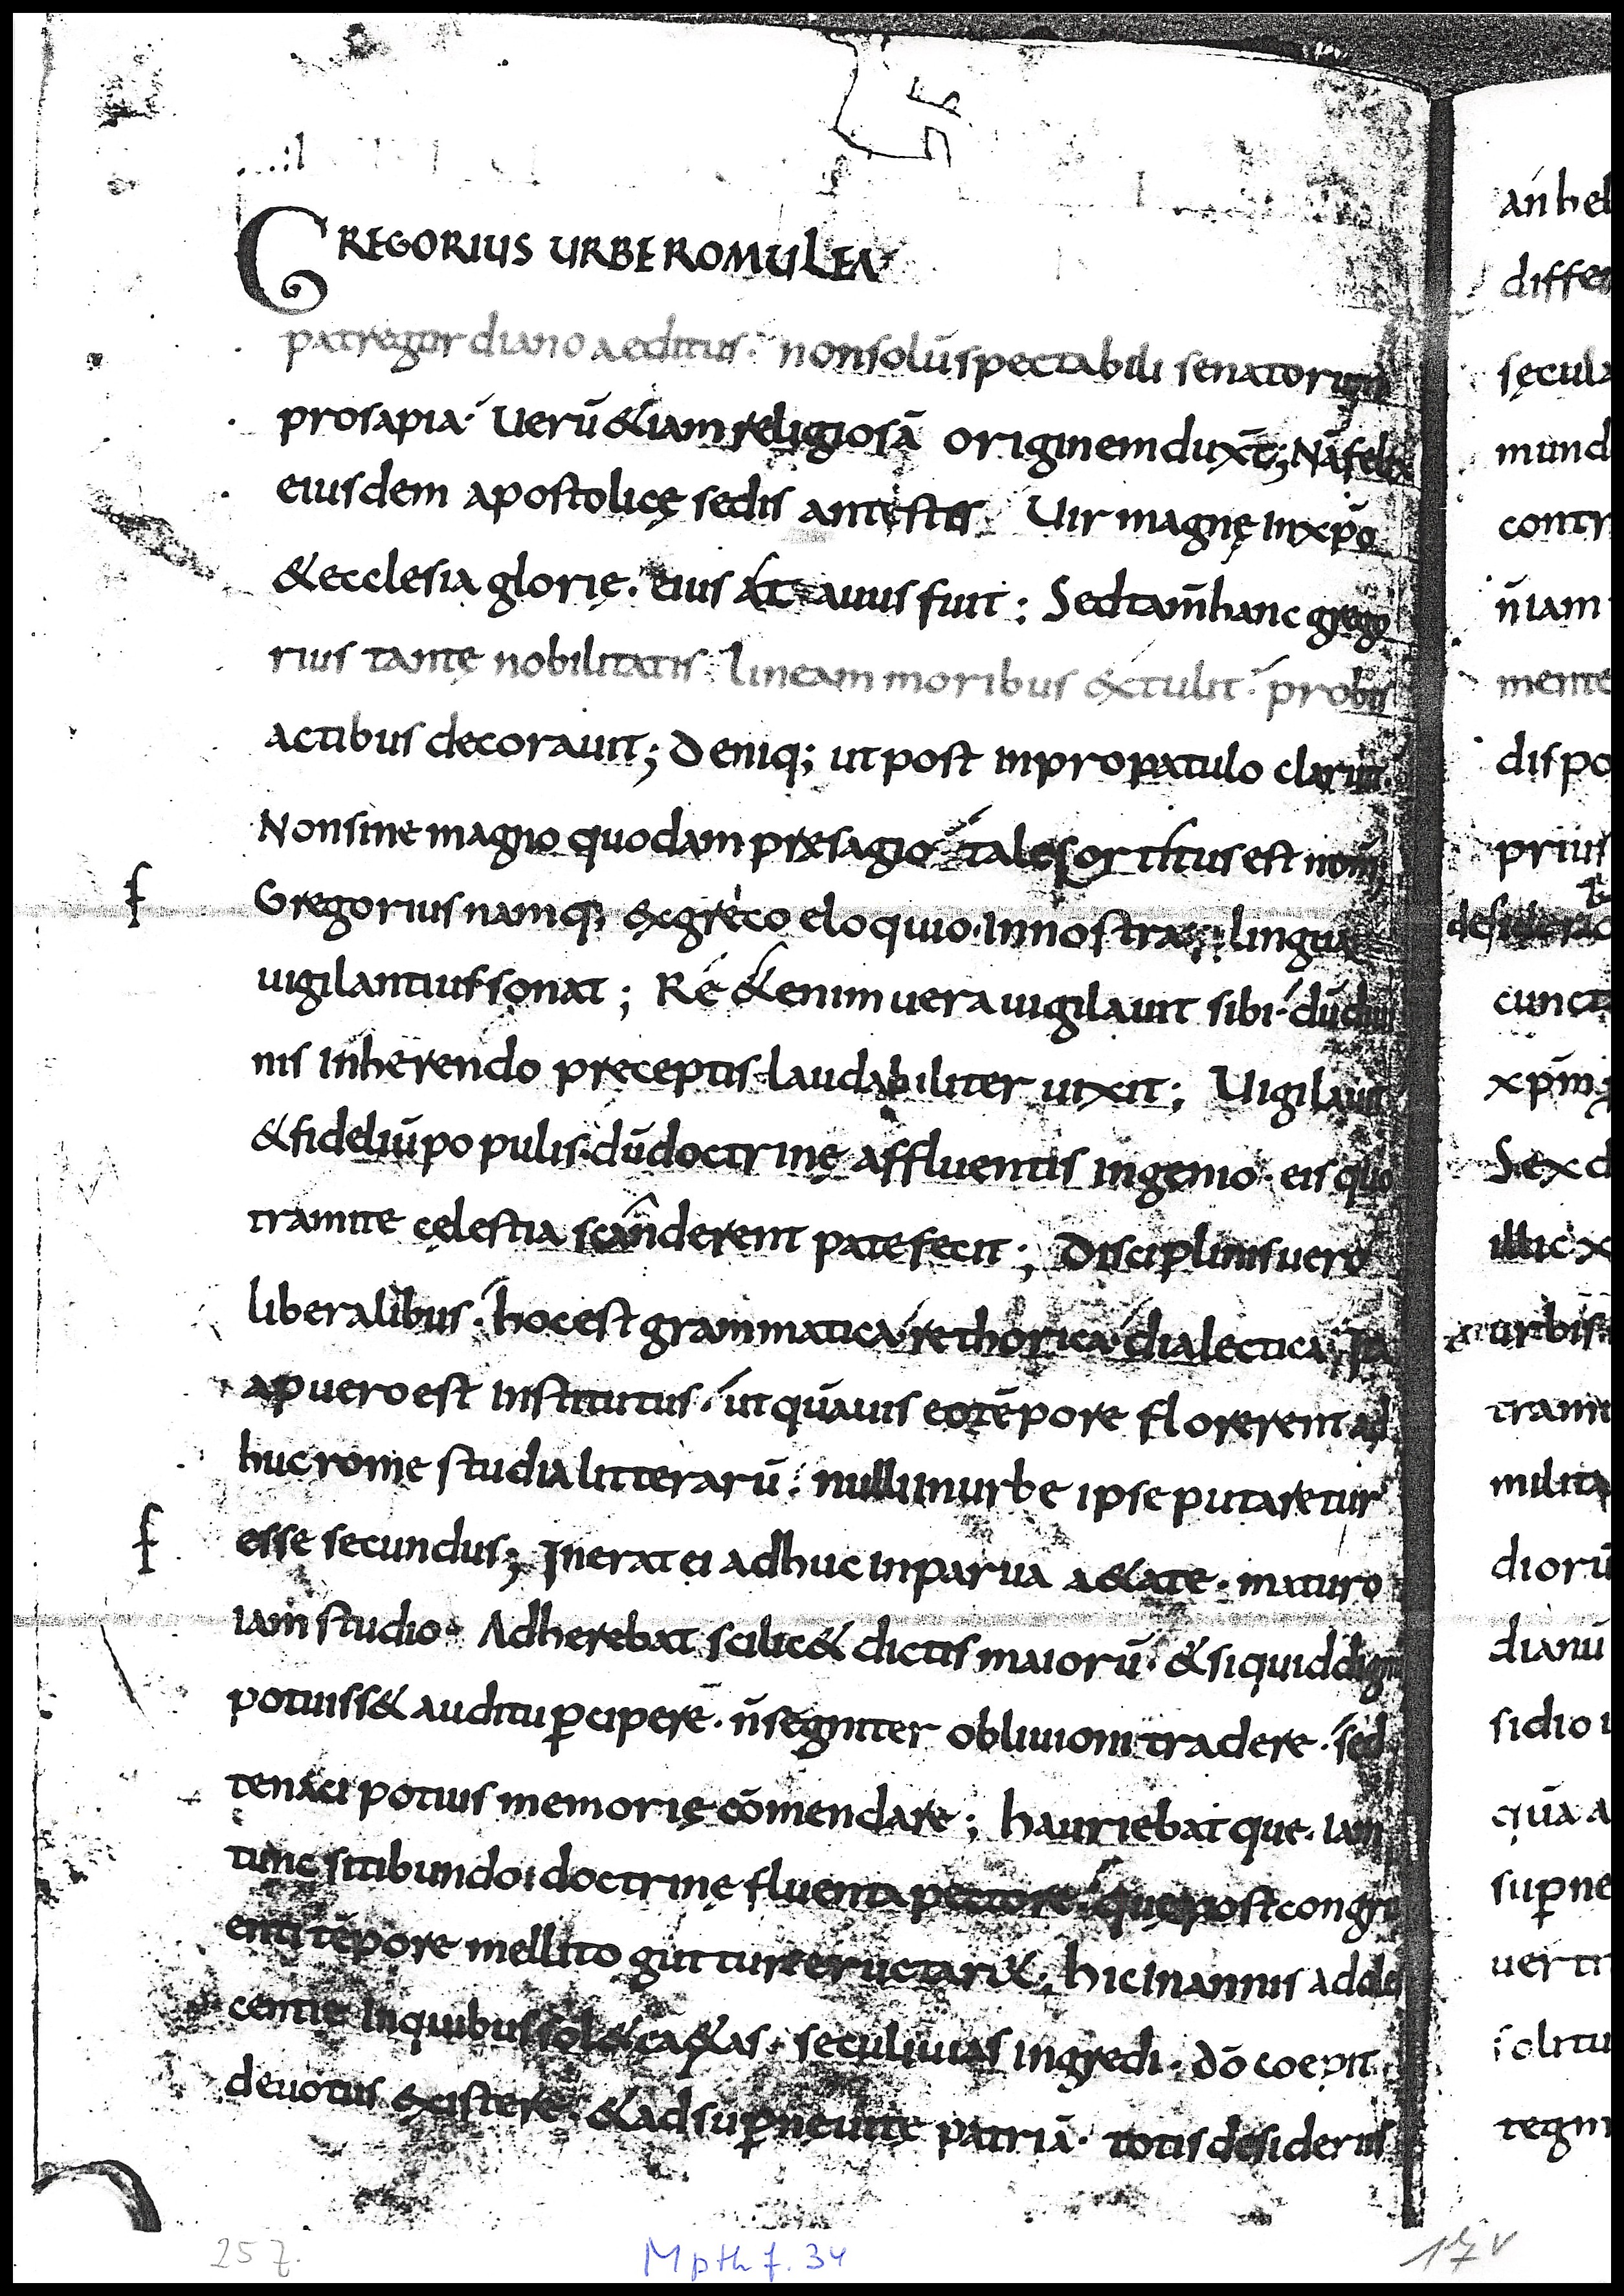 GREGORIUS URBE ROMULEA
patre gordiano aeditus. non solū spectabili senatorum
prosapia. Uerū &iam religiosā originem dux̄t; Nā felix
eiusdem apostolicę sedis antestis. Uir magnę in xp̄o
& ecclesia glorię. eius at auus fuit; Sed tam̄ hanc grego
rius tantę nobilitatis lineam moribus extulit. probis
actibus decorauit; Deniq; ut post in propatulo claruit.
Non sine magno quodam pręsagio tale sortitus est nom̄;
Gregorius namq; ex greco eloquio. In nostra lingua
uigilantius sonat; Re &enim uera uigilauit sibi. dū diui
nis inherendo preceptis laudabiliter uixit; Uigilauit
& fideliū populis. dū doctrinę affluentis ingenio. eis quo
tramite celestia scanderent patefecit; Disciplinis uero
liberalibus. hoc est grammatica. rethorica. dialectica; Ita
a puero est institutus. ut quāuis eo tēpore florerent ad
huc rome studia litterarū. nulli in urbe ipse putaretur
esse secundus; Inerat ei adhuc in parua a&ate. maturo
iam studio. Adherebat scilic& dictis maiorū. & siquid dignū
potuiss& auditu ꝑcipere. n̄ segniter obliuioni tradere. sed
tenaci potius memorię cōmendare; hauriebatque. iam
tunc sitibundo doctrinę fluenta pectore. quę post congru
enti tēpore mellito gutture eructar&. hic in annis adoles
centię In quibus sol& ea &as. seculi uias ingredi. dō coepit
deuotus existere. & ad suꝑnę uitę patriā. totis desideriis
an hel
differ
sęcula
mund
contr
n̄ iam
mente
dispo
prius
cunct
xp̄m
Sex d
illic
urbis
tram
milita
diorū
dianū
sidio
quā a
suꝑne
uerti
solitu
tegm
257.
Mpth f. 34
17v